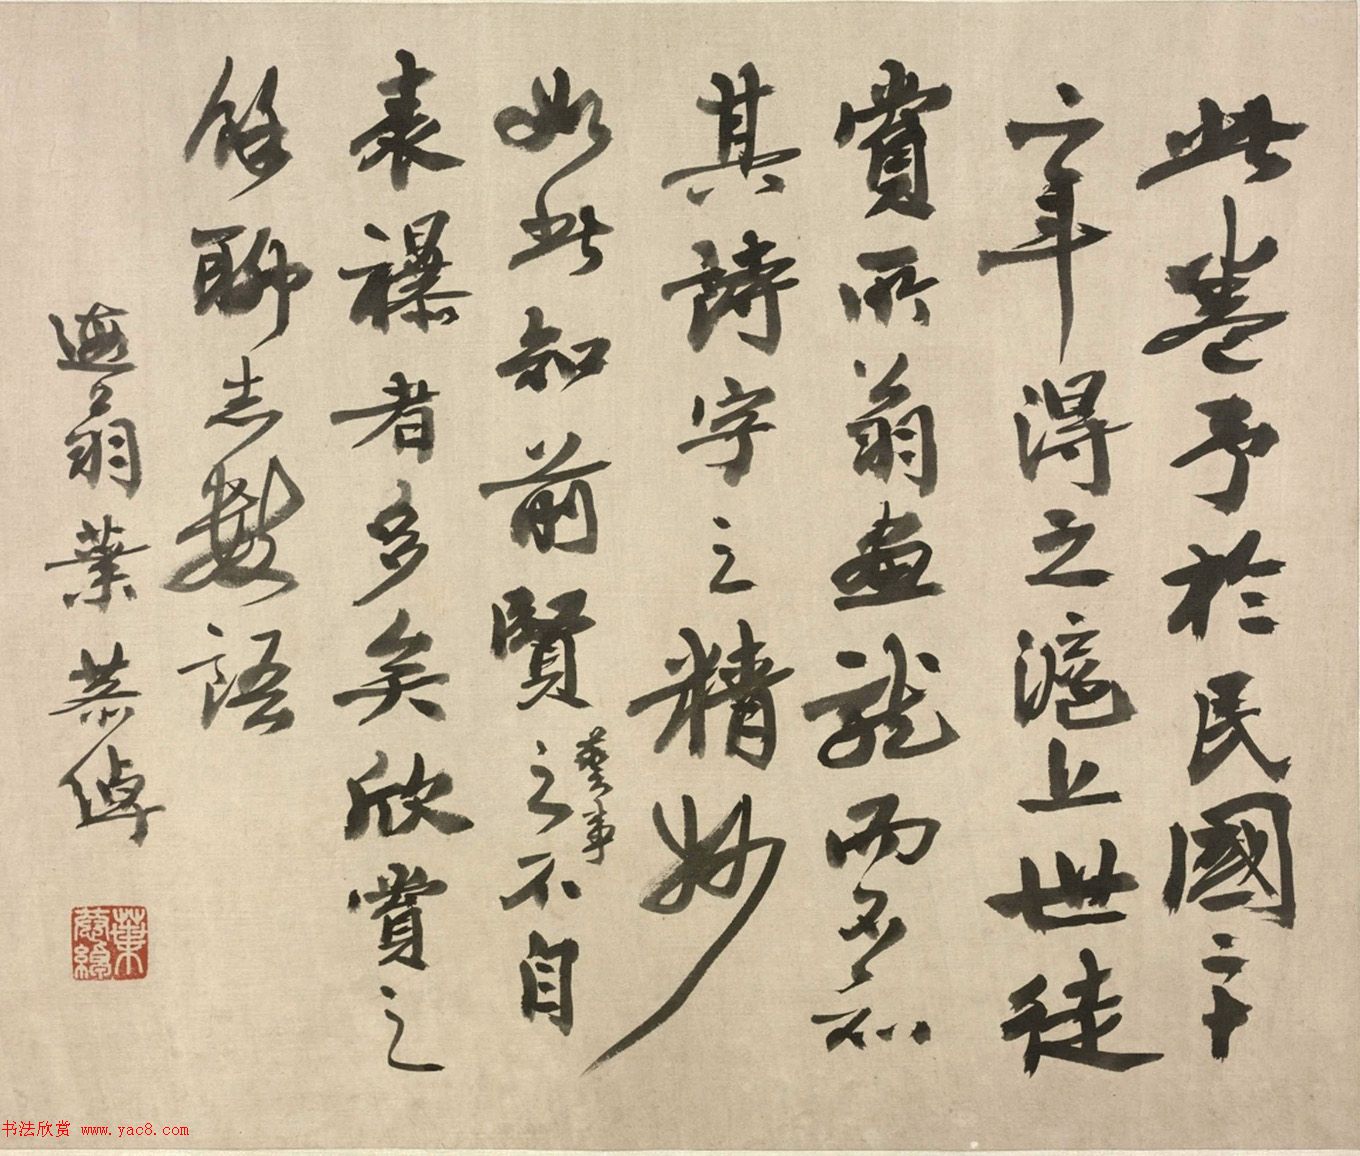 此卷予於民國二十
二年得之滬上世徒
賞所翁畫龍而多不知
其詩字之精妙
如此知前賢之藝事不自
表襮者多矣欣賞之
餘聊志數語
遐翁葉恭綽
葉恭綽
书法欣赏 www.yac8.com